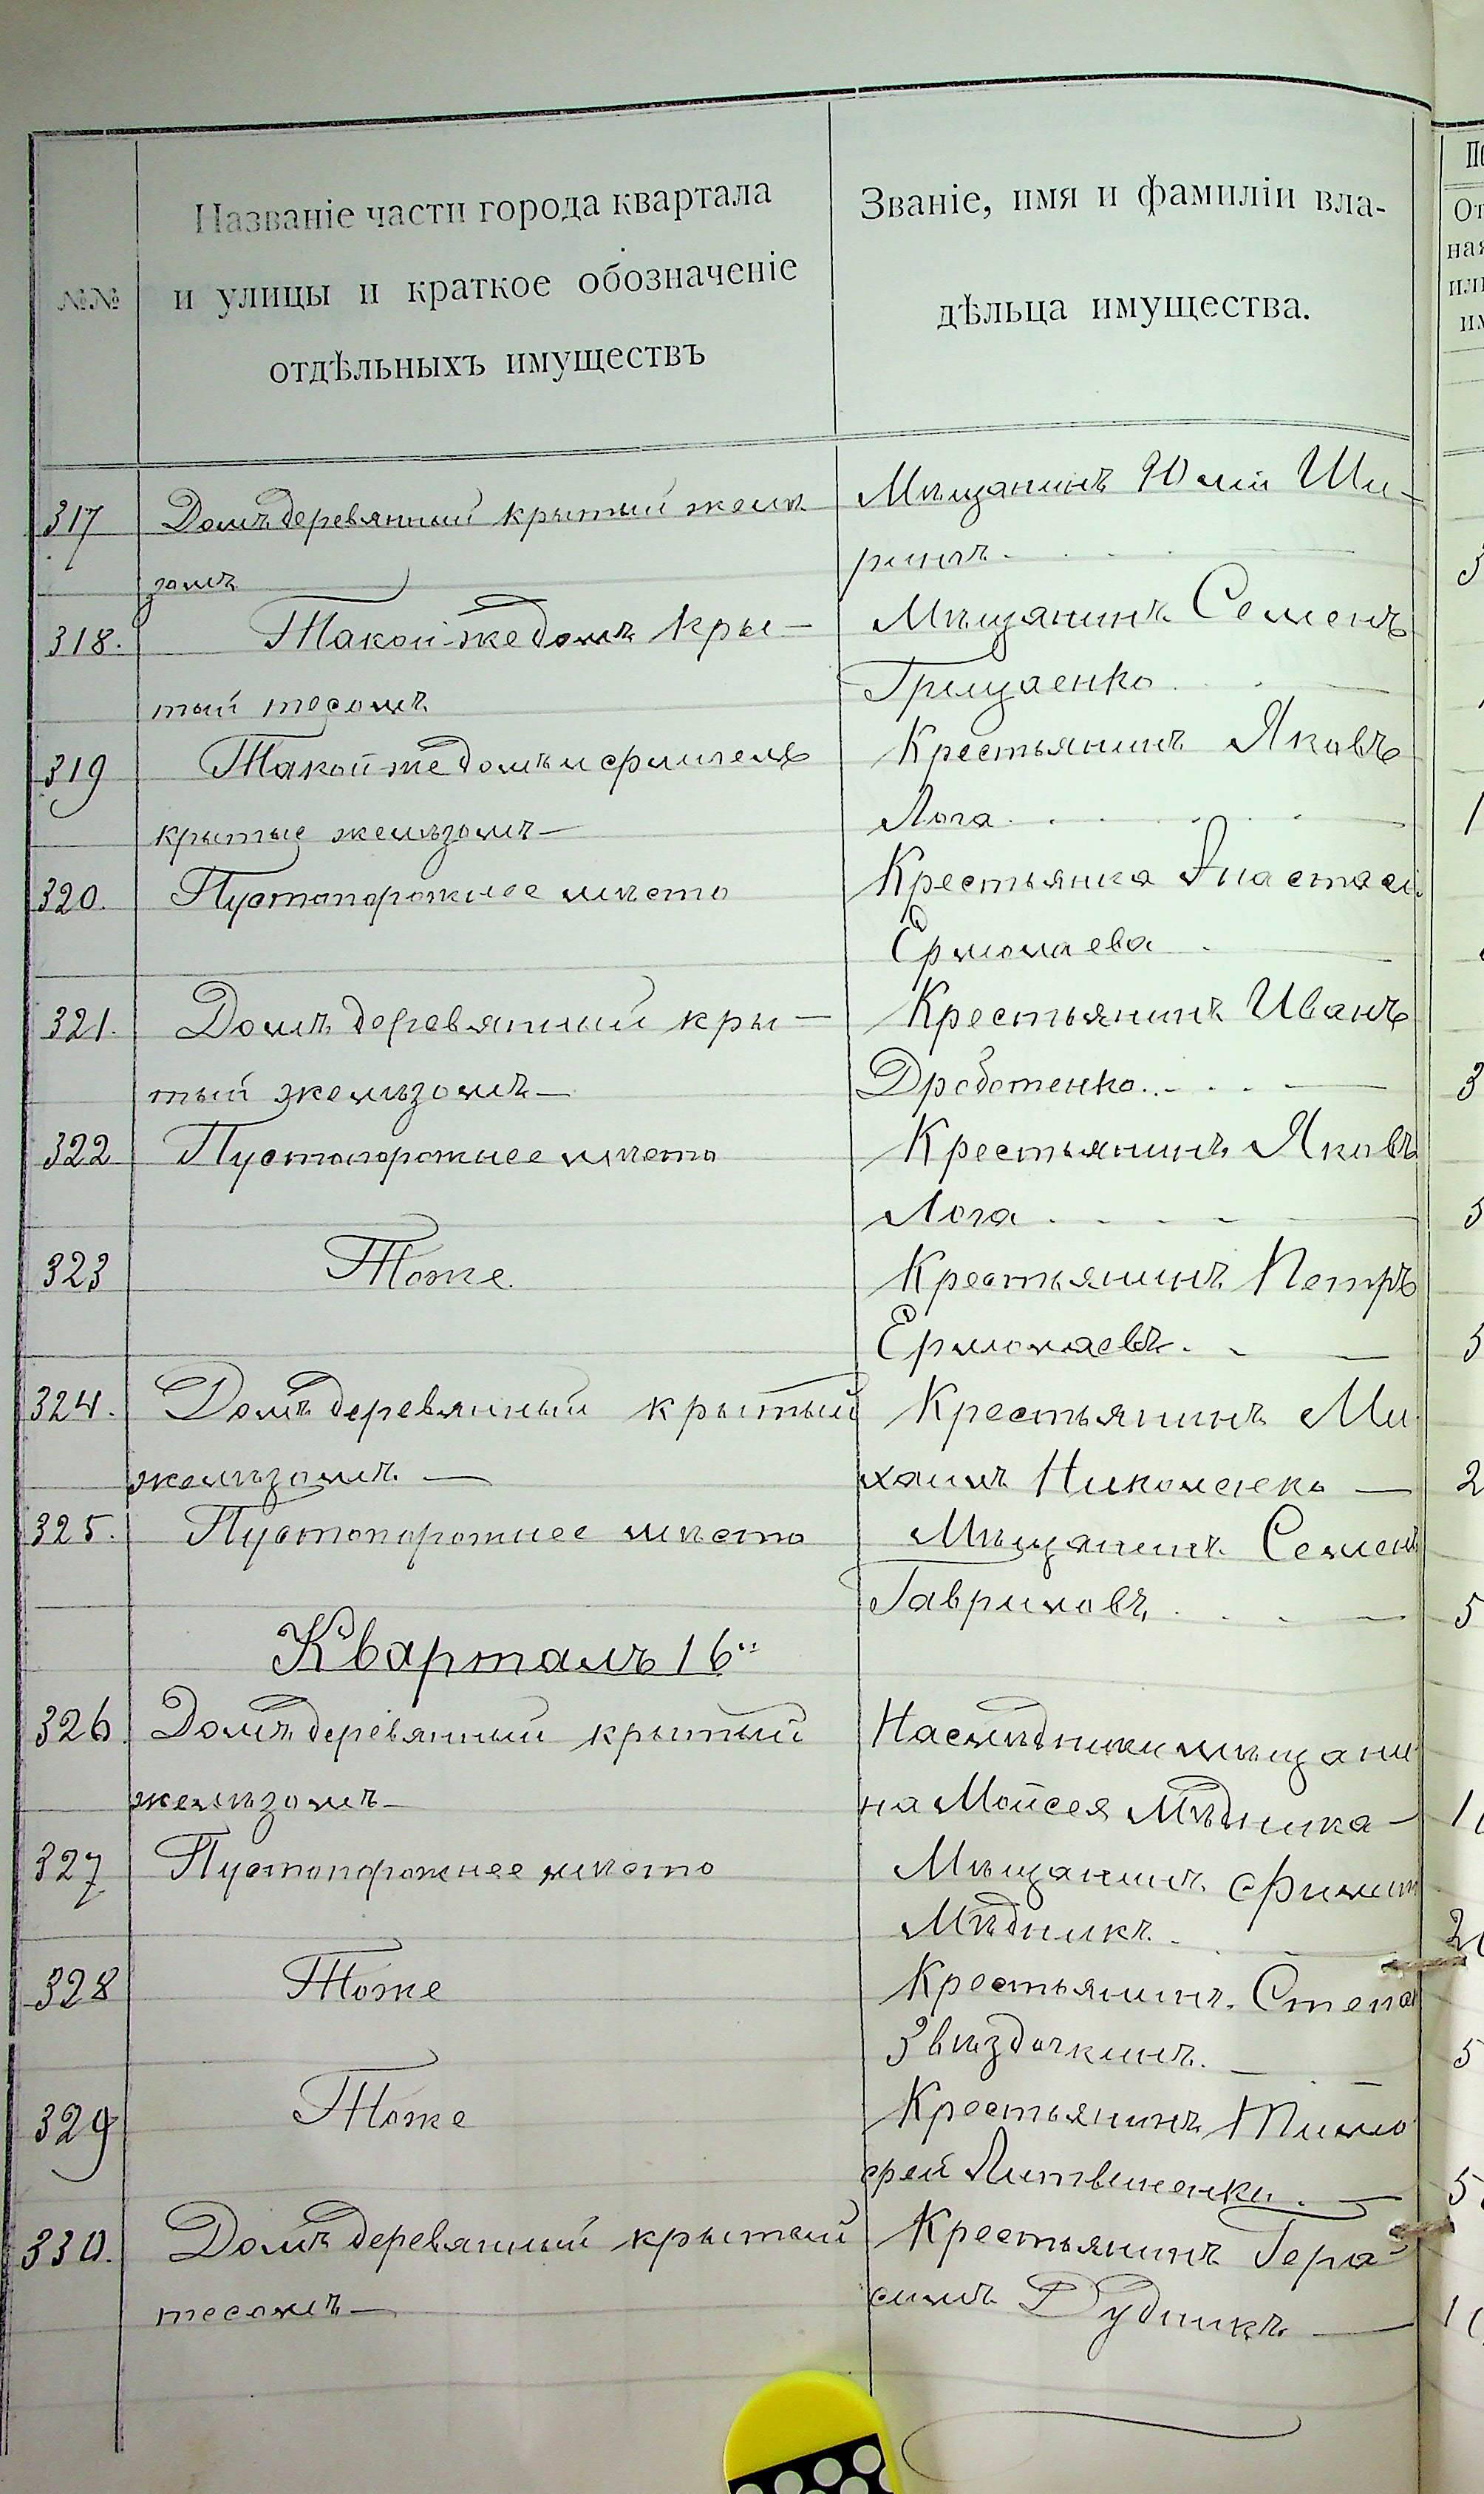 №№
Названіе части города квартала
и улицы и краткое обозначеніе
отдѣльныхъ имуществъ
Званіе, имя и фамиліи вла-
дѣльца имущества.
317 Домъ деревянный крытый желѣ Мѣщанинъ Юлій Ши-
зомъ ринъ
318. Такой-же домъ кры- Мѣщанинъ Семенъ
тый тесомъ Грищаенко
319 Такой-же домъ и флигель Крестьянинъ Яковъ
крытые желѣзомъ- Лога
320. Пустопорожнее мѣсто Крестьянка Анастасія
Ермолаева
321. Домъ деревянный кры- Крестьянинъ Иванъ
тый желѣзомъ- Дроботенко 3
322 Пустопорожнее мѣсто Крестьянинъ Яковъ
Лога 5
323 Тоже. Крестьянинъ Петръ
Ермолаевъ. 5
324. Домъ деревянный крытый Крестьянинъ Ми
желѣзомъ. — хаилъ Николаенко — 2
325. Пустопорожнее мѣсто Мѣщанинъ Семенъ
Гавриловъ 5
Кварталъ 16"
326. Домъ деревянный крытый Наслѣдники мѣщани
желѣзомъ- на Мойсея Мѣдника-
327 Пустопорожнее мѣсто Мѣщанинъ Филип
Мѣдникъ
328 Тоже Крестьянинъ Степан
Звѣздочкинъ. 5
329 Тоже Крестьянинъ Тимо
фей Литвиненко
330. Домъ деревянный крытый Крестьянинъ Гера-
тесомъ- симъ Рудникъ